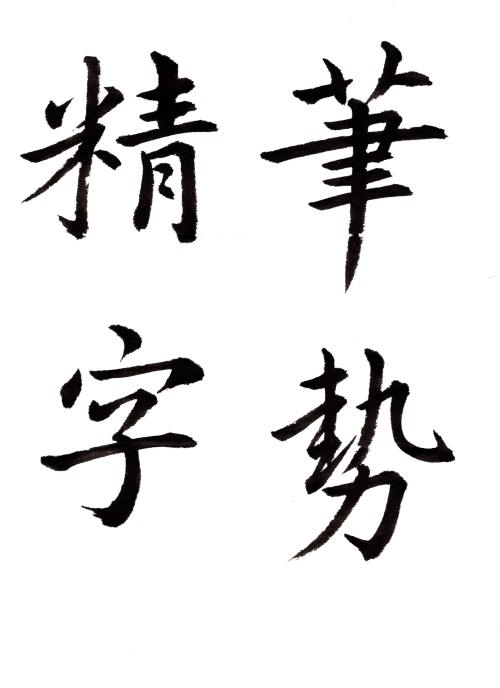 筆勢
精字